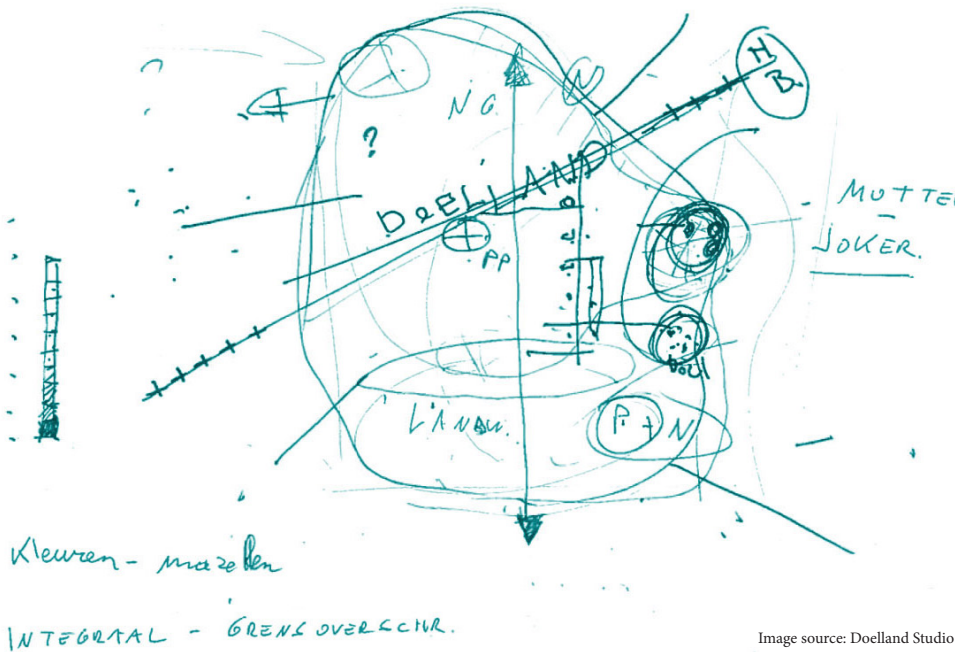 H
B.
N
N G.
?
DOELLAND
PP
MUTTE
-
JOKER.
LANDW.
P + N
Kleuren -
INTEGRAAL - GRENSOVERSCHR.
Image source: Doelland Studio